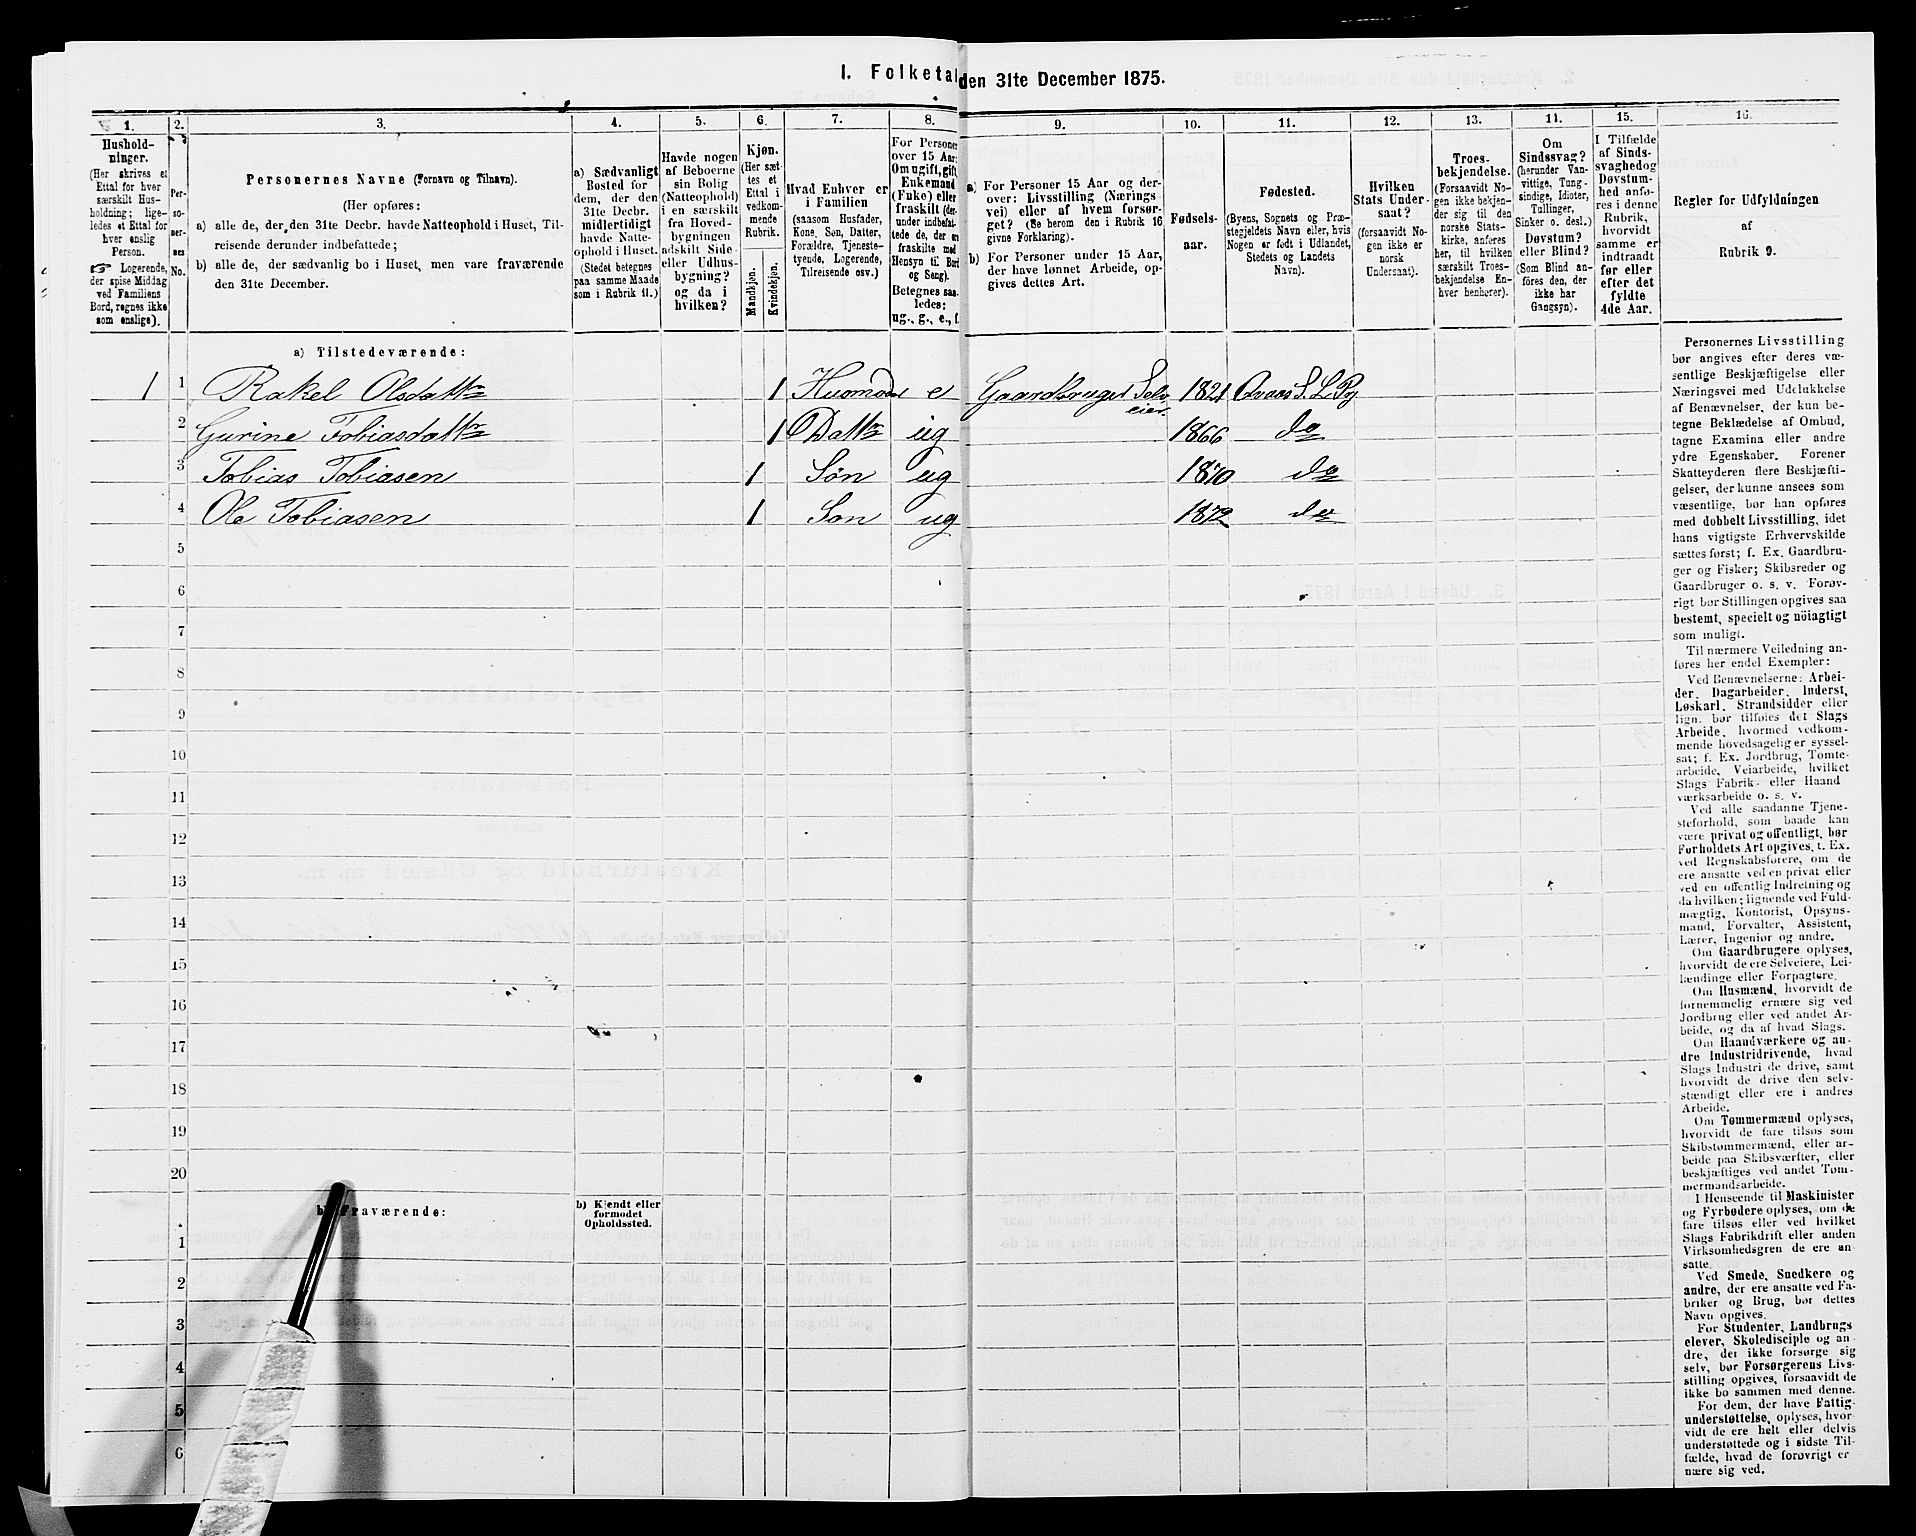 I. Folketal den 31te December 1875.
1. 2. 3. 4. 5. 6. 7. 8. 9. 10. 11. 12. 13. 14. 15. 16.
Hushold-
ninger.
(Her skrives et
Ettal for hver
særskilt Hus-
holdning; lige-
ledes et Ettal for
hver enslig
Person.
☞ Logerende,
der spise Middag
ved Familiens
Bord, regnes ikke
som enslige).
Per-
so-
ner-
nes
No.
Personernes Navne (Fornavn og Tilnavn).
(Her opføres:
a) alle de, der den 31te Decbr. havde Natteophold i Huset, Til-
reisende derunder indbefattede;
b) alle de, der sædvanlig bo i Huset, men vare fraværende
den 31te December.
a) Sædvanligt
Bosted for
dem, der den
31te Decbr.
midlertidigt
havde Natte-
ophold i Huset.
(Stedet betegnes
paa samme Maade
som i Rubrik 11.)
Havde nogen
af Beboerne
sin Bolig
(Natteophold)
i en særskilt
fra Hoved-
bygningen
adskilt Side-
eller Udhus-
bygning?
og da i
hvilken?
Kjøn.
(Her sæt-
tes et
Ettal i
vedkom-
mende
Rubrik.
Mandkjøn.
Kvindekjøn.
Hvad Enhver er
i Familien
(saasom Husfader,
Kone, Søn, Datter,
Forældre, Tjeneste-
tyende, Logerende,
Tilreisende osv.)
For Personer
over 15 Aar:
Om ugift, gift,
Enkemand
(Enke) eller
fraskilt (der-
under indbefat-
tede de, der ere
fraskilte med
Hensyn til Bord
og Seng).
Betegnes saa-
ledes:
ug., g., e., f.
a) For Personer 15 Aar og der-
over: Livsstilling (Nærings-
vei) eller af hvem forsør-
get? (Se herom den i Rubrik 16
givne Forklaring).
b) For Personer under 15 Aar,
der have lønnet Arbeide, op-
gives dettes Art.
Fødsels-
aar.
Fødested.
(Byens, Sognets og Præ-
stegjeldets Navn eller, hvis
Nogen er født i Udlandet,
Stedets og Landets
Navn).
Hvilken
Stats Under-
saat?
(forsaavidt No-
gen ikke er
norsk
Undersaat).
Troes-
bekjendelse.
(Forsaavidt No-
gen ikke bekjen-
der sig til den
norske Stats-
kirke, anføres
her, til hvilken
særskilt Troes-
bekjendelse En-
hver henhører).
Om
Sindssvag?
(herunder Van-
vittige, Tung-
sindige, Idioter,
Tullinger,
Sinker o. desl.)
Døvstum?
eller Blind?
(Som Blind an-
føres den, der
ikke har
Gangsyn).
I Tilfælde
af Sinds-
svaghed og
Døvstum-
hed anfø-
res i denne
Rubrik,
hvorvidt
samme er
indtraadt
før eller
efter det
fyldte
4de Aar.
Regler for Udfyldningen
af
Rubrik 9.
a) Tilstedeværende:
1 1 Rakel Olsdattr 1 Husmoder e Gaardbruger Selv-
eier 1821 S. L. Pg
2 Gurine Tobiasdattr 1 Dattr ug 1866 do
3 Tobias Tobiasen 1 Søn ug 1870 do
4 Ole Tobiasen 1 Søn ug 1872 do
5
6
7
8
9
10
11
12
13
14
15
16
17
18
19
20
b) Fraværende:
b) Kjendt eller
formodet
Opholdssted.
1
2
3
4
5
6
Personernes Livsstilling
bør angives efter deres væ-
sentlige Beskjæftigelse eller
Næringsvei med Udelukkelse
af Benævnelser, der kun be-
tegne Beklædelse af Ombud,
tagne Examina eller andre
ydre Egenskaber. Forener
Skatteyderen flere Beskjæfti-
gelser, der kunne ansees som
væsentlige, bør han opføres
med dobbelt Livsstilling, idet
hans vigtigste Erhvervskilde
sættes først; f. Ex. Gaardbru-
ger og Fisker; Skibsreder og
Gaardbruger o. s. v. Forøv-
rigt bør Stillingen opgives saa
bestemt, specielt og nöiagtigt
som muligt.
Til nærmere Veiledning an-
føres her endel Exempler:
Ved Benævnelserne: Arbei-
der, Dagarbeider, Inderst,
Løskarl, Strandsidder eller
lign. bør tilføies det Slags
Arbeide, hvormed vedkom-
mende hovedsagelig er syssel-
sat; f. Ex. Jordbrug, Tomte-
arbeide, Veiarbeide, hvilket
Slags Fabrik- eller Haand-
værksarbeide o. s. v.
Ved alle saadanne Tjene-
steforhold, som baade kan
være privat og offentligt, bør
Forholdets Art opgives, f. Ex.
ved Regnskabsførere, om de
ere ansatte ved en privat eller
ved en offentlig Indretning og
da hvilken; lignende ved Fuld-
mægtig, Kontorist, Opsyns-
mand, Forvalter, Assistent,
Lærer, Ingeniør og andre.
Om Gaardbrugere oplyses,
hvorvidt de ere Selveiere, Lei-
lændinge eller Forpagtere.
Om Husmænd, hvorvidt de
fornemmelig ernære sig ved
Jordbrug eller ved andet Ar-
beide, og da af hvad Slags.
Om Haandværkere og an-
dre Industridrivende, hvad
Slags Industri de drive, samt
hvorvidt de drive den selv-
stændigt eller ere i andres
Arbeide.
Om Tømmermænd oplyses,
hvorvidt de fare tilsøs som
Skibstømmermænd, eller ar-
beide paa Skibsværfter, eller
beskjæftiges ved andet Tøm-
mermandsarbeide.
I Henseende til Maskinister
og Fyrbødere oplyses, om de
fare tilsøs eller ved hvilket
Slags Fabrikdrift eller anden
Virksomhedsgren de ere an-
satte.
Ved Smede, Snedkere og
andre, der ere ansatte ved Fa-
briker og Brug, bør dettes
Navn opgives.
For Studenter, Landbrugs-
elever, Skoledisciple og an-
dre, der ikke forsørge sig
selv, bør Forsørgerens Livs-
stilling opgives, forsaavidt de
ikke bo sammen med denne.
For dem, der have Fattig-
understøttelse, oplyses, hvor-
vidt de ere helt eller delvis
understøttede og i sidste Til-
fælde, hvad de forøvrigt er-
nære sig ved.